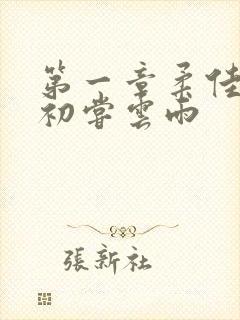 第一章柔佳
初嘗雲雨
張新社